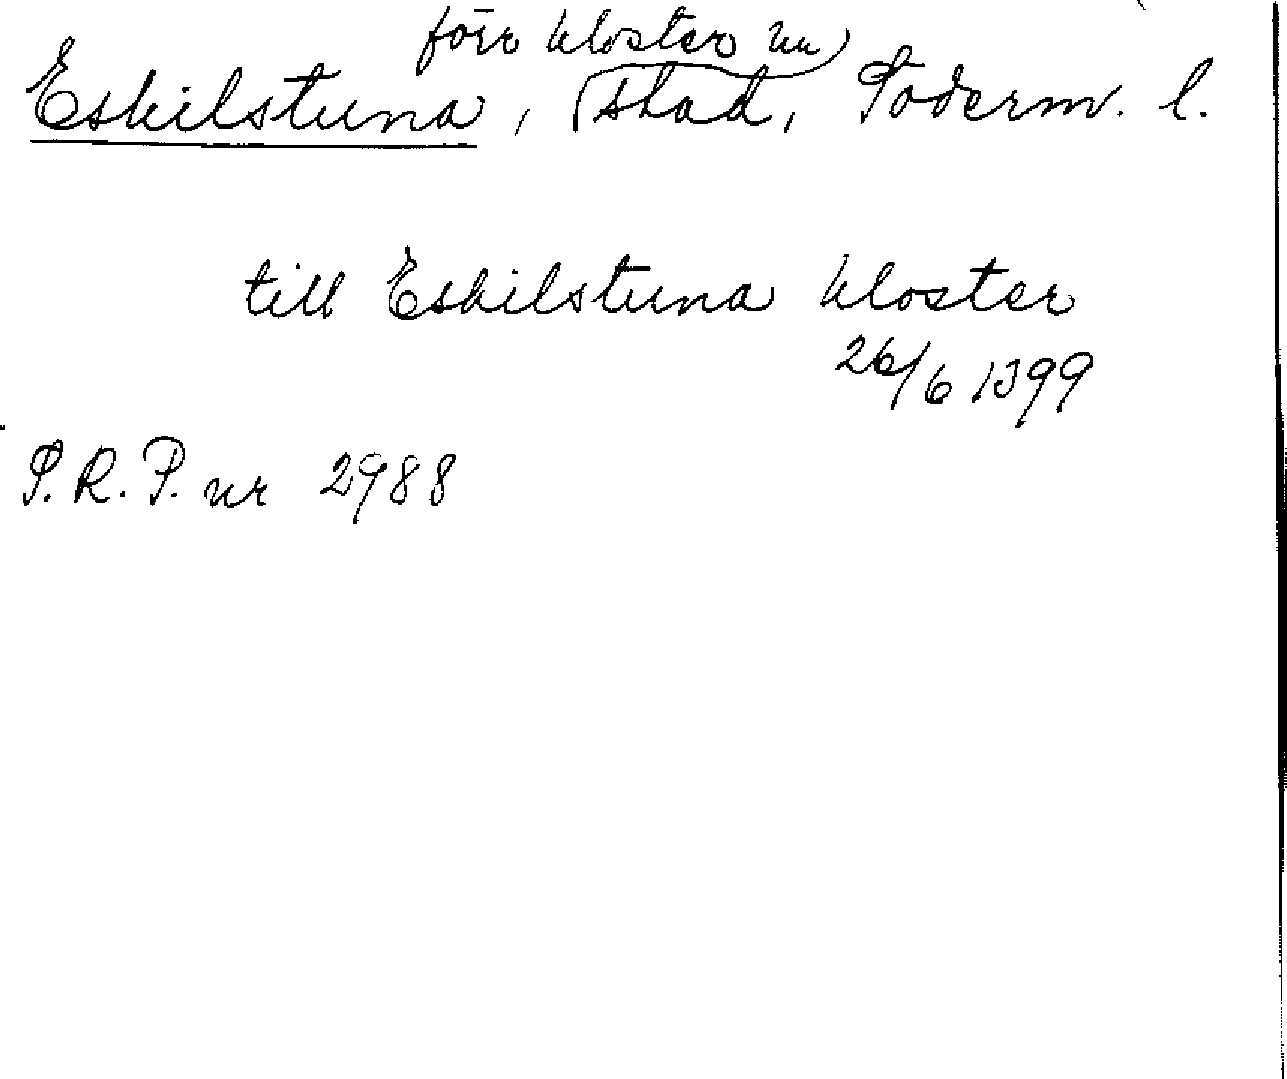 Eskilstuna, förr kloster nu stad, Söderm. l.
till Eskilstuna kloster
26/6 1399
S.R.P. nr 2988